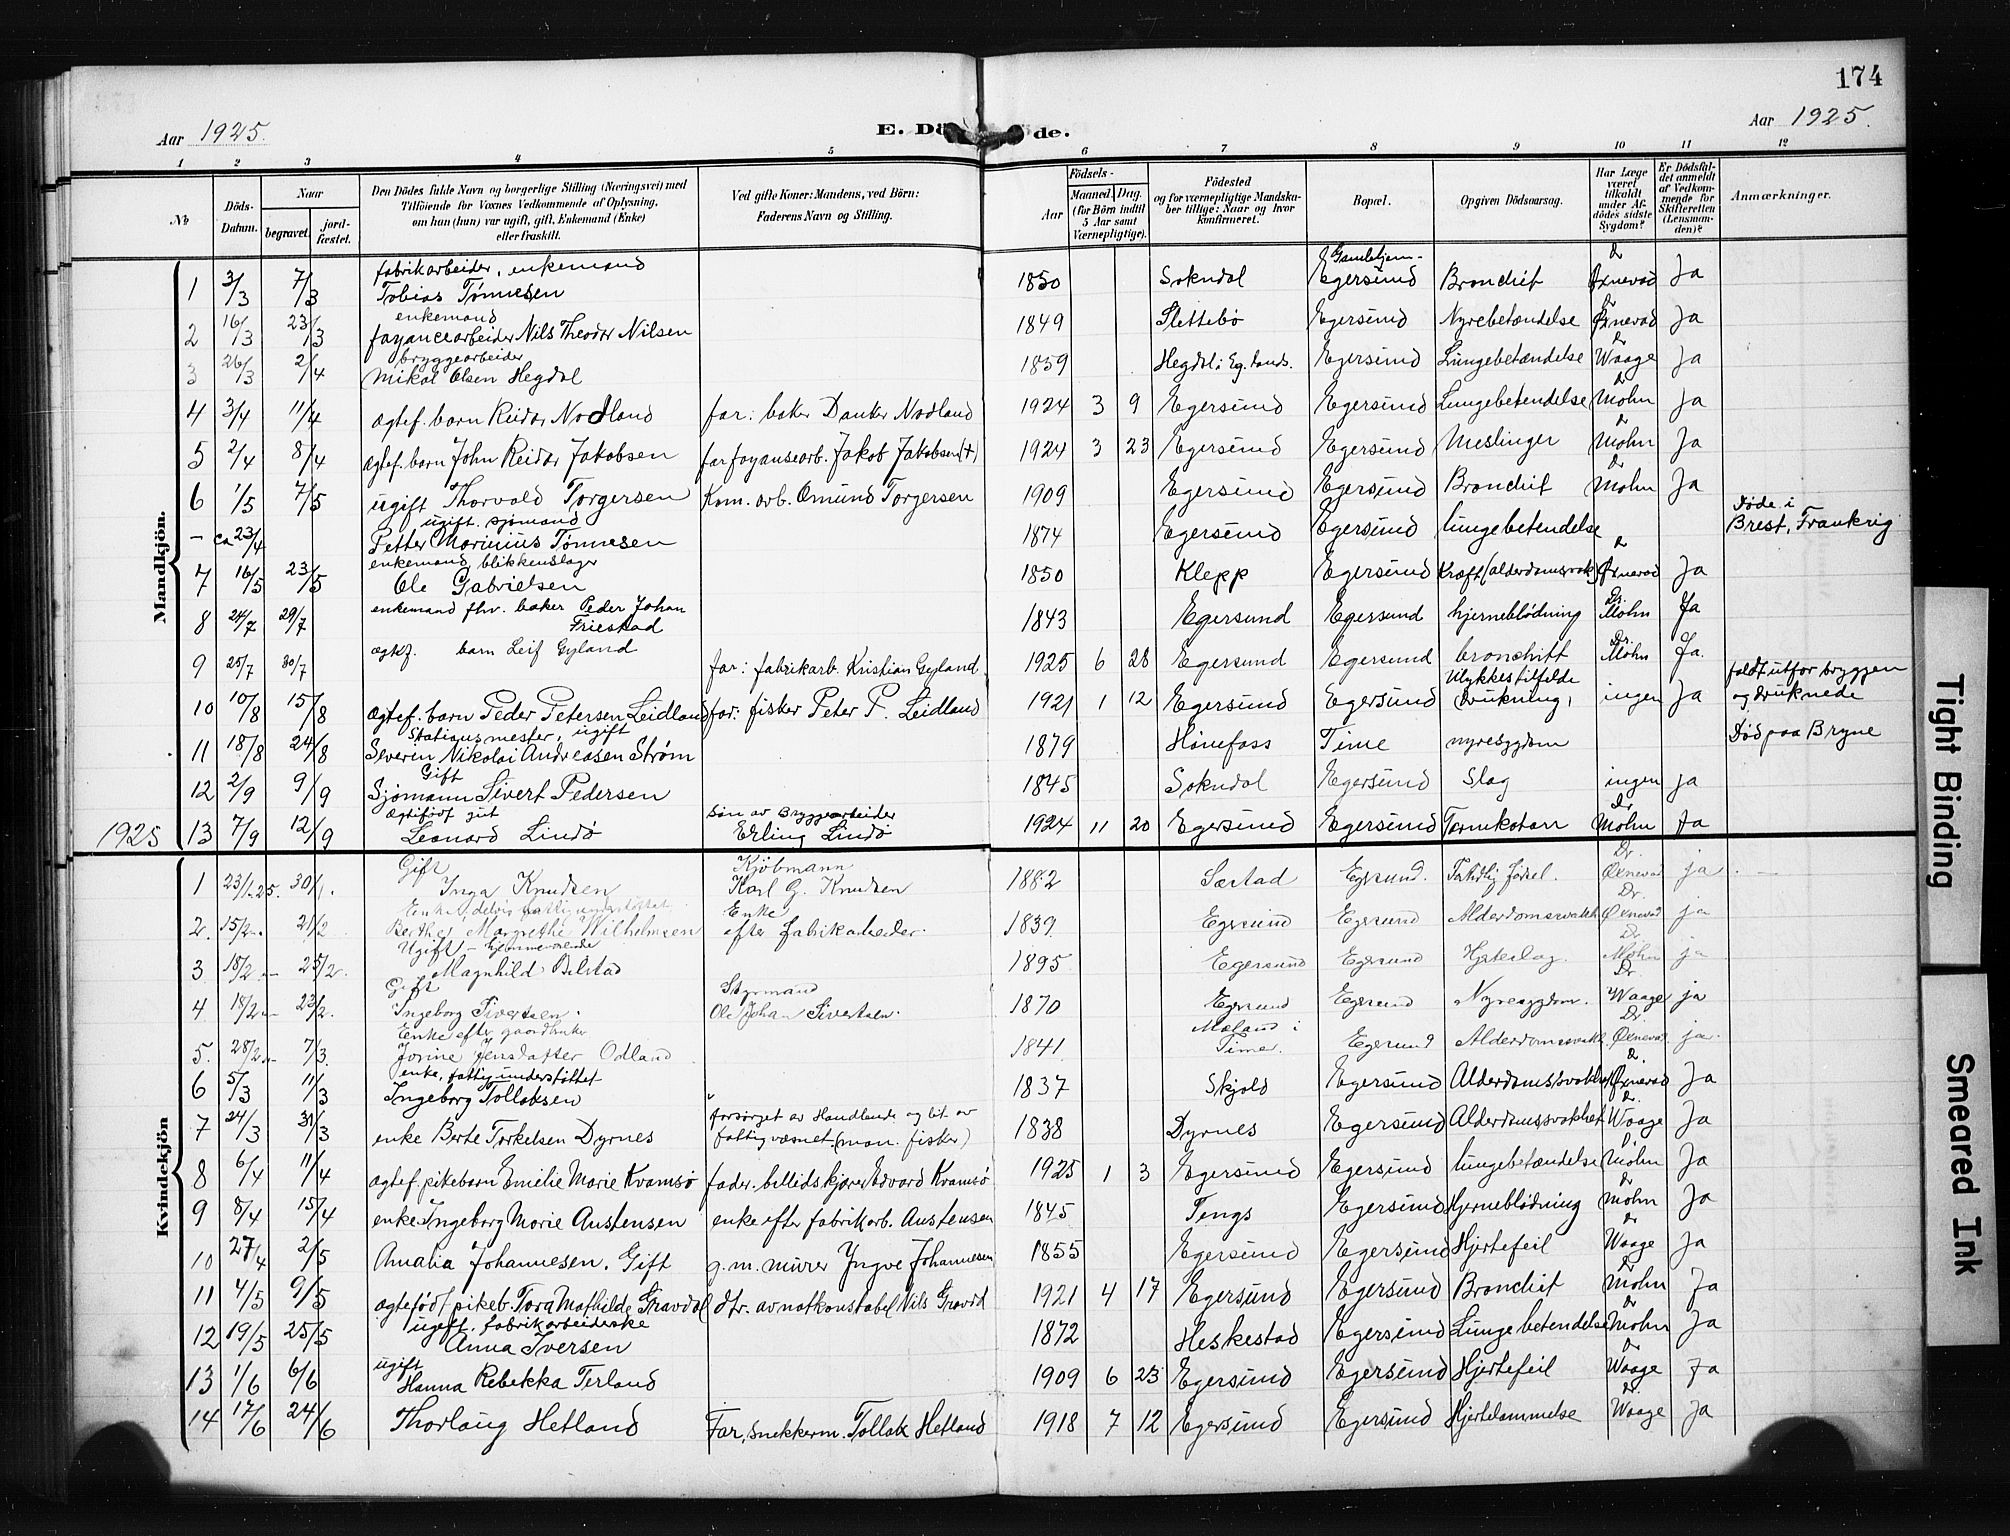 174
Aar 1925.
E. Dö de.
Aar 1925.
1 2 3 4 5 6 7 8 9 10 11 12
No.
Döds-Datum.
Naar
begravet.
jord-fæstet.
Den Dödes fulde Navn og borgerlige Stilling (Næringsvei) med
Tilföiende for Voxnes Vedkommende af Oplysning,
om han (hun) var ugift, gift, Enkemand (Enke)
eller fraskilt.
Ved gifte Koner: Mandens, ved Börn:
Faderens Navn og Stilling.
Födsels-
Aar
Maaned. Dag.
(for Börn indtil
5 Aar samt
Værnepligtige).
Födested
og for værnepligtige Mandska-
ber tillige: Naar og hvor
konfirmeret.
Bopæl.
Opgiven Dödsaarsag.
Har Læge
været
tilkaldt
under Af-
dödes sidste
Sygdom?
Er Dödsfal-
det anmeldt
af Vedkom-
mende for
Skifteretten
(Lensman-
den)?
Anmærkninger.
Mandkjön.
1 3/3 7/3 fabrikarbeider, enkemand Tobias Tønnesen 1850 Sokndal Gamlehjem- Egersund Bronchit Dr Øxnevad Ja
2 16/3 23/3 enkemand fayancearbeider Nils Theodor Nilsen 1849 Slettebö Egersund Nyrebetændelse Dr Øxnevad Ja
3 26/3 2/4 bryggearbeider Mikal Olsen Hegdal 1859 Hegdal i Eg. lands. Egersund Lungebetændelse Dr Waage Ja
4 3/4 11/4 ægtef. barn Reidar Nodland far: baker Danker Nodland 1924 3 9 Egersund Egersund Lungebetendelse Dr Mohn Ja
5 2/4 8/4 ægtef. barn John Reidar Jakobsen far fayansearb. Jakob Jakobsen (+) 1924 3 23 Egersund Egersund Meslinger Dr Mohn Ja
6 1/5 7/5 ugift Thorvald Torgersen Kom. arb. Omund Torgersen 1909 Egersund Egersund Bronchit Dr Mohn Ja
- ca 23/4 ugift. sjømand Petter Marinius Tønnesen 1874 Egersund Egersund lungebetendelse Døde i Brest, Frankrig
7 16/5 23/5 enkemand, blikkenslager Ole Gabrielsen 1850 Klepp Egersund Kræft (alderdomssvak) Dr Øxnevad Ja
8 24/7 29/7 enkemand fhv. baker Peder Johan Friestad 1843 Egersund Egersund hjerneblödning Dr. Mohn Ja
9 25/7 30/7 ægtef. barn Leif Gyland far: fabrikarb. Kristian Gyland. 1925 6 28 Egersund Egersund bronchitt Dr. Mohn Ja.
10 10/8 15/8 ægtef. barn Peder Petersen Leidland far: fisker Peter P. Leidland 1921 1 12 Egersund Egersund Ulykkestilfelde Drukning, ingen Ja faldt utfor bryggen og druknede
11 18/8 24/8 Stationsmester, ugift Severin Nikolai Andreasen Strøm 1879 Hönefoss Time nyresygdom Död paa Bryne
12 2/9 9/9 Gift Sjømann Sivert Pedersen 1845 Sokndal Egersund Slag ingen ja
1925 13 7/9 12/9 Ægtefödt gut Leonard Lindö søn av Bryggearbeider Erling Lindö 1924 11 20 Egersund Egersund Tarmkatarr Dr Mohn Ja
Kvindekjön
1 23/1-25. 30/1. Gift Inga Knudsen Kjöbmann Karl G. Knudsen 1882 Egersund. Dr. Øxnevad ja
2. 15/2-. 21/2 Enke, delvis fattigunderstöttet Berthe Margrethe Wilhelmsen Enke efter fabrikarbeider. 1839 Egersund Egersund Alderdomssvakh Dr. Øxnevad ja
3 18/2- 25/2. Ugift, - hjemmeværende Magnhild Bilstad 1895 Egersund Egersund Dr. Mohn ja
4 18/2- 23/2. Gift Ingeborg Sivertsen. Styrmand Ole Johan Sivertsen. 1870 Egersund Egersund Nyresygdom. Dr Waage ja
5. 28/2- 7/3. Enke efter gaardbruker Jorine Jensdatter Odland 1841 Mæland i Time. Egersund Alderdomssvakh Dr Øxnevad ja.
6 5/3 11/3 enke, fattigunderstøttet Ingeborg Tollaksen 1837 Skjold Egersund Alderdomssvakhet Dr. Øxnevad Ja
7 24/3 31/3 enke Berte Torkelsen Dyrnes forsörget av Handlende og lit av fattigvæsnet (man. fisker) 1838 Dyrnes Egersund Alderdomssvakhet Dr. Waage Ja
8 6/4 11/4 ægtef. pikebarn Emilie Marie Kvamsö fader. billedskjærer Edvard Kvamsö 1925 1 3 Egersund Egersund lungebetændelse Dr Mohn Ja
9 8/4 15/4 enke Ingeborg Marie Austensen enke efter fabrikarb. Austensen 1845 Tengs Egersund Hjerneblödning Dr Mohn Ja
10 27/4 2/5 Amalia Johannesen. Gift g. m. murer Yngve Johannesen 1855 Egersund Egersund Hjertefeil Dr Waage Ja
11 4/5 9/5 ægtefödt pikeb. Tora Mathilde Gravdal dtr. av natkonstabel Nils Gravdal 1921 4 17 Egersund Egersund Bronchit Dr Mohn Ja
12 19/5 25/5 ugift. fabrikarbeiderske Anna Iversen 1872 Heskestad Egersund Lungebetendelse Dr Mohn Ja
13 1/6 6/6 ugift Hanna Rebekka Terland 1909 6 23 Egersund Egersund Hjertefeil Dr Waage Ja
14 17/6 24/6 Thorlaug Hetland Far, snekkerm. Tollak Hetland 1918 7 12 Egersund Egersund Hjertelammelse Dr. Waage Ja
Tight Binding
Smeared Ink